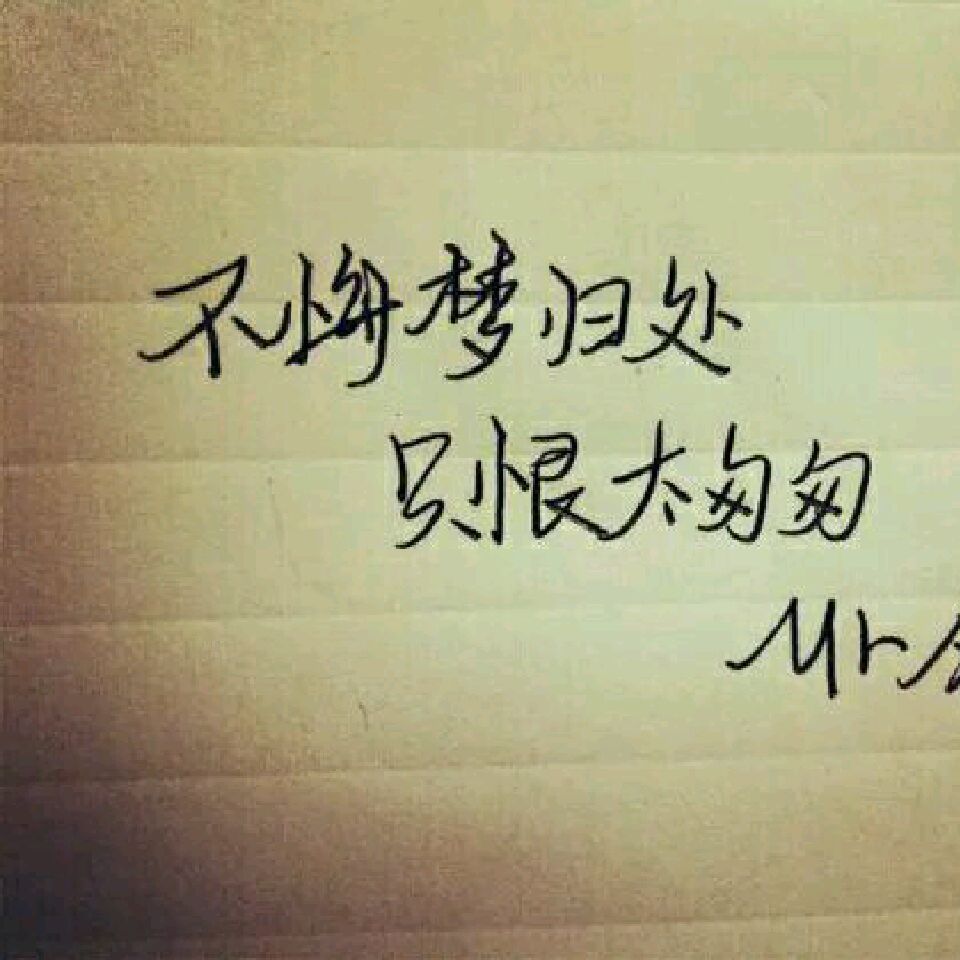 不悔梦归处
只恨太匆匆
Mr